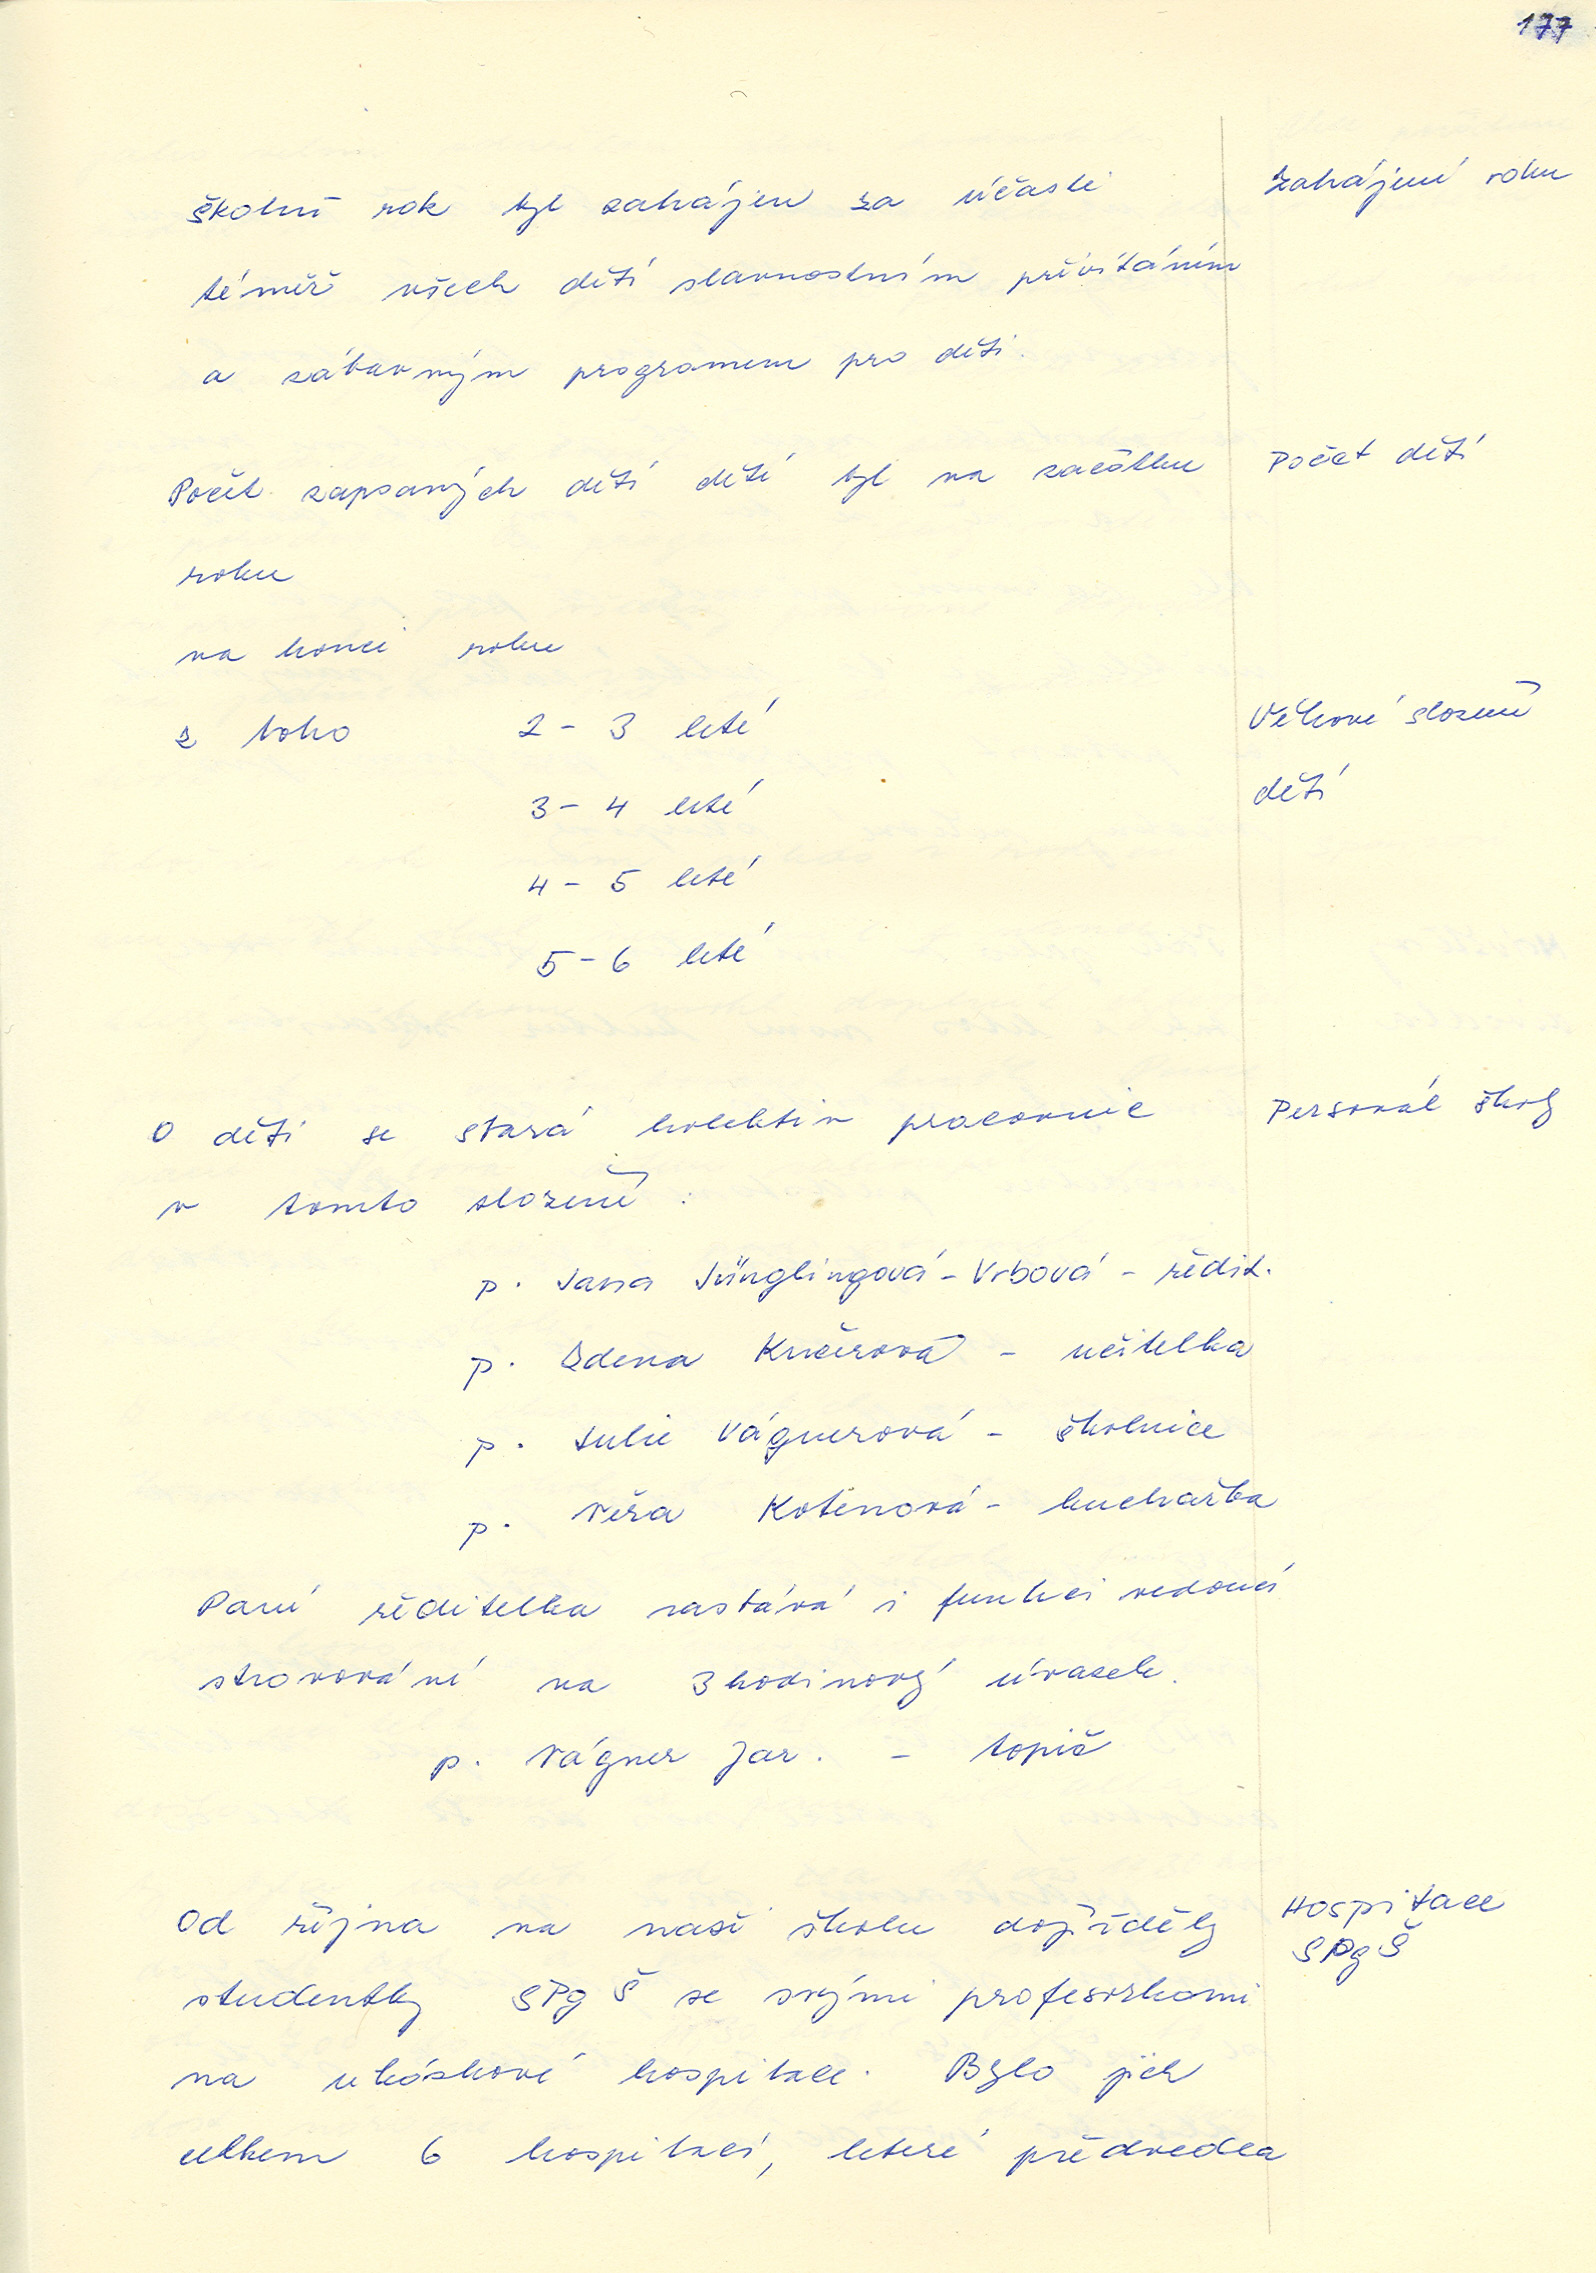 177
Školní rok byl zahájen za účasti
Zahájení roku
téměř všech dětí slavnostním přivítáním
a zábavným programem pro děti.
Počet zapsaných dětí dětí byl na začátku
Počet dětí
roku
na konci roku
z toho 2 - 3 leté
Věkové složení
3 - 4 leté
dětí
4 - 5 leté
5 - 6 leté
O děti se stará kolektiv pracovnic
Personál školy
v tomto složení :
p. Jana Jünglingová - Vrbová - ředit.
p. Zdena Kučerová - učitelka
p. Julie Vágnerová - školnice
p. Věra Kotěnová - kuchařka
Paní ředitelka zastává i funkci vedoucí
stravování na 3 hodinový úvazek.
p. Vágner Jar. - topič
Od října na naši školu dojížděly
Hospitace
SPgŠ
studentky SPgŠ se svými profesorkami
na ukázkové hospitace. Bylo jich
celkem 6 hospitací, které předvedla